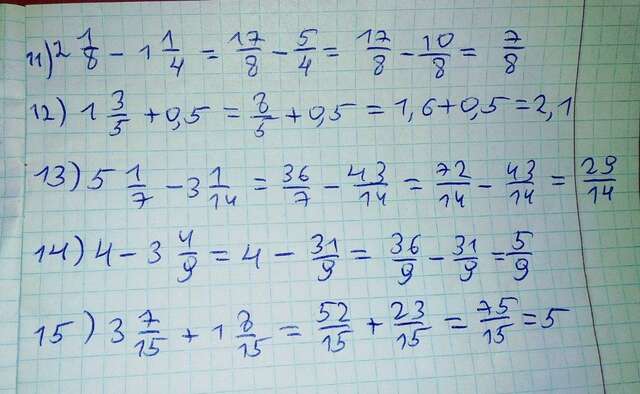 11) 2 1/8 - 1 1/4 = 17/8 - 5/4 = 17/8 - 10/8 = 7/8
12) 1 3/5 + 0,5 = 8/5 + 0,5 = 1,6 + 0,5 = 2,1
13) 5 1/7 - 3 1/14 = 36/7 - 43/14 = 72/14 - 43/14 = 29/14
14) 4 - 3 4/9 = 4 - 31/9 = 36/9 - 31/9 = 5/9
15) 3 7/15 + 1 8/15 = 52/15 + 23/15 = 75/15 = 5